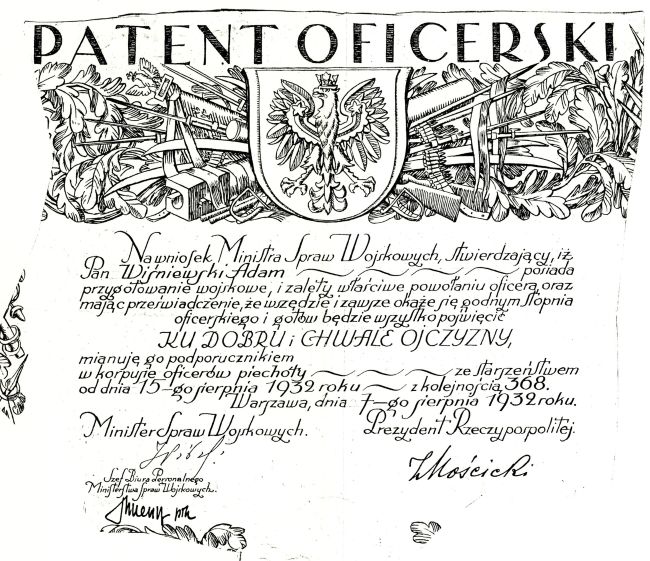 PATENT OFICERSKI
Na wniosek Ministra Spraw Wojskowych, stwierdzający, iż
Pan Wiśniewski Adam posiada
przygotowanie wojskowe, i zalety właściwe powołaniu oficera, oraz
mając przeświadczenie, że wszędzie i zawsze okaże się godnym stopnia
oficerskiego i gotów będzie wszystko poświęcić
KU DOBRU i CHWALE OJCZYZNY,
mianuję go podporucznikiem
w korpusie oficerów piechoty ze starszeństwem
od dnia 15-go sierpnia 1932 roku z kolejnością 368.
Warszawa, dnia 7-go sierpnia 1932 roku.
Minister Spraw Wojskowych.
Prezydent Rzeczypospolitej
IMościcki
Szef Biura Personalnego
Ministerstwa Spraw Wojskowych.